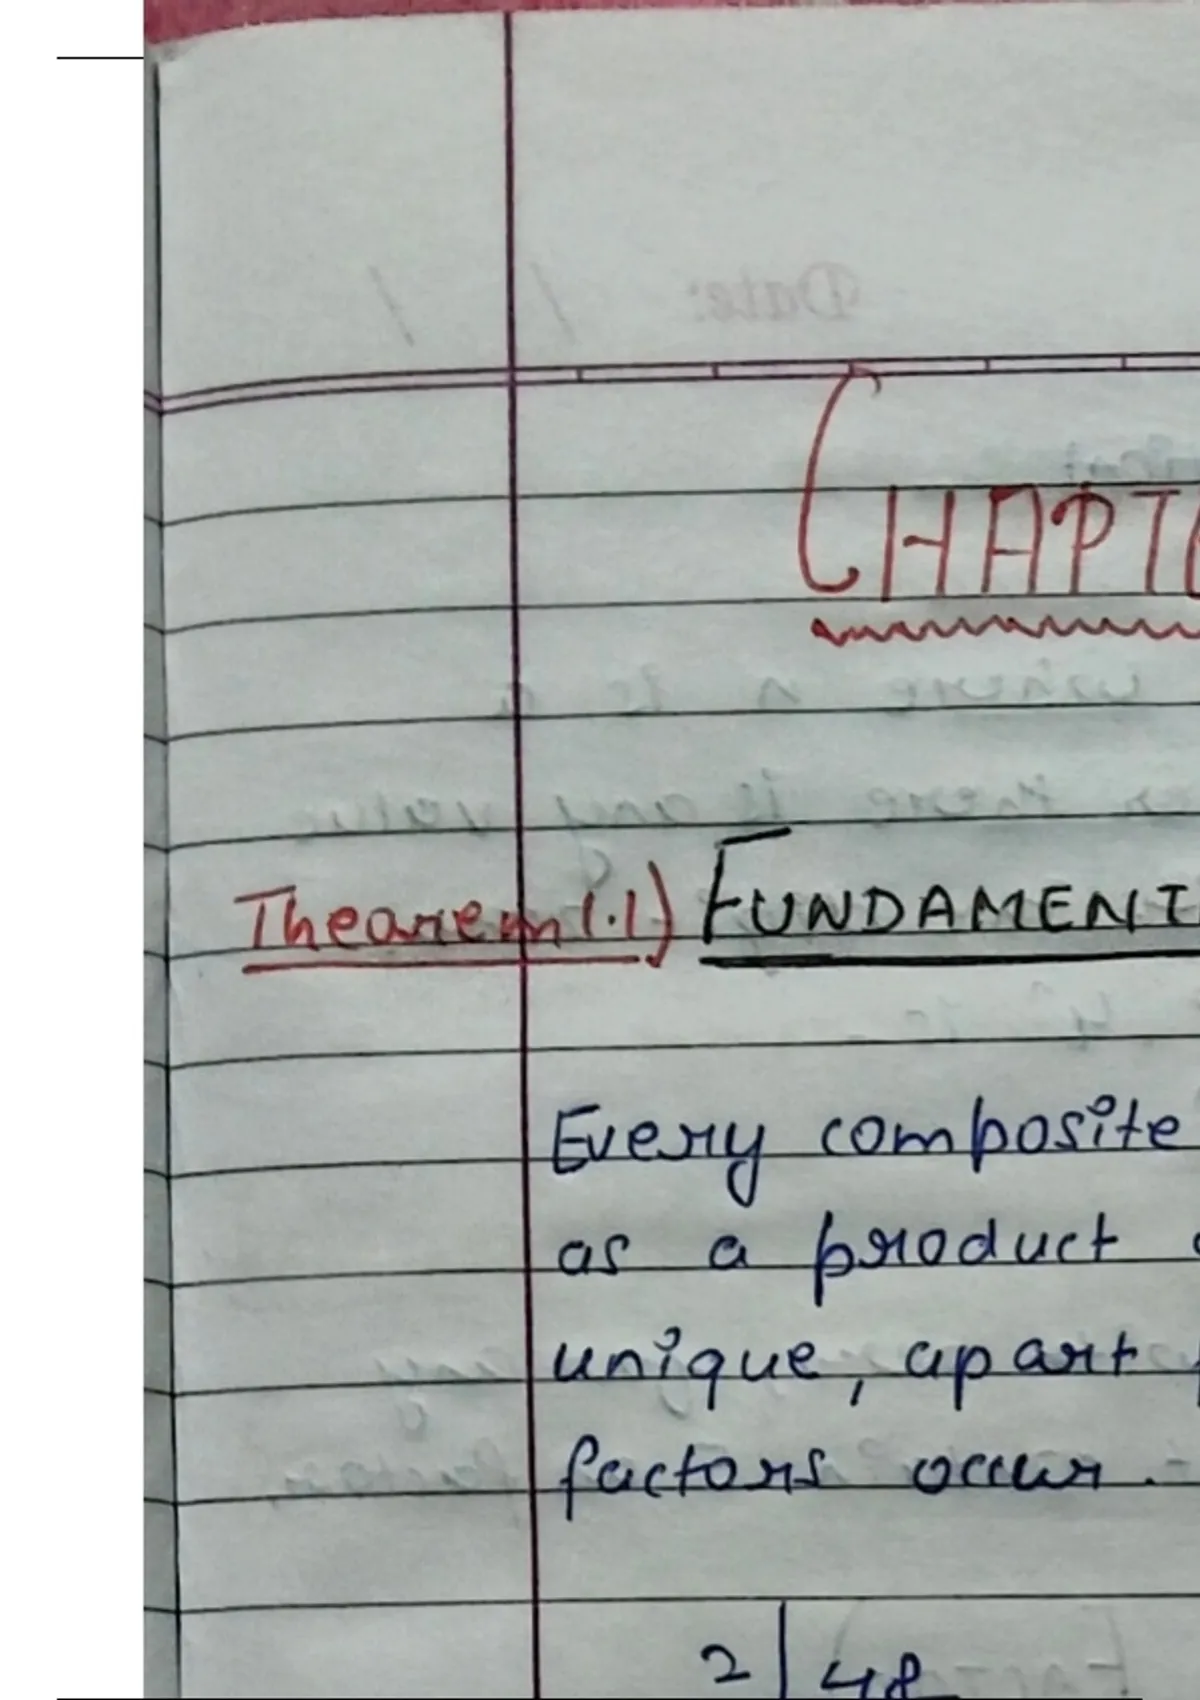 Date: / /
CHAPTE
Theorem 1.1) FUNDAMENT
Every composite
as a product
unique, apart
factors occur.
2 | 48